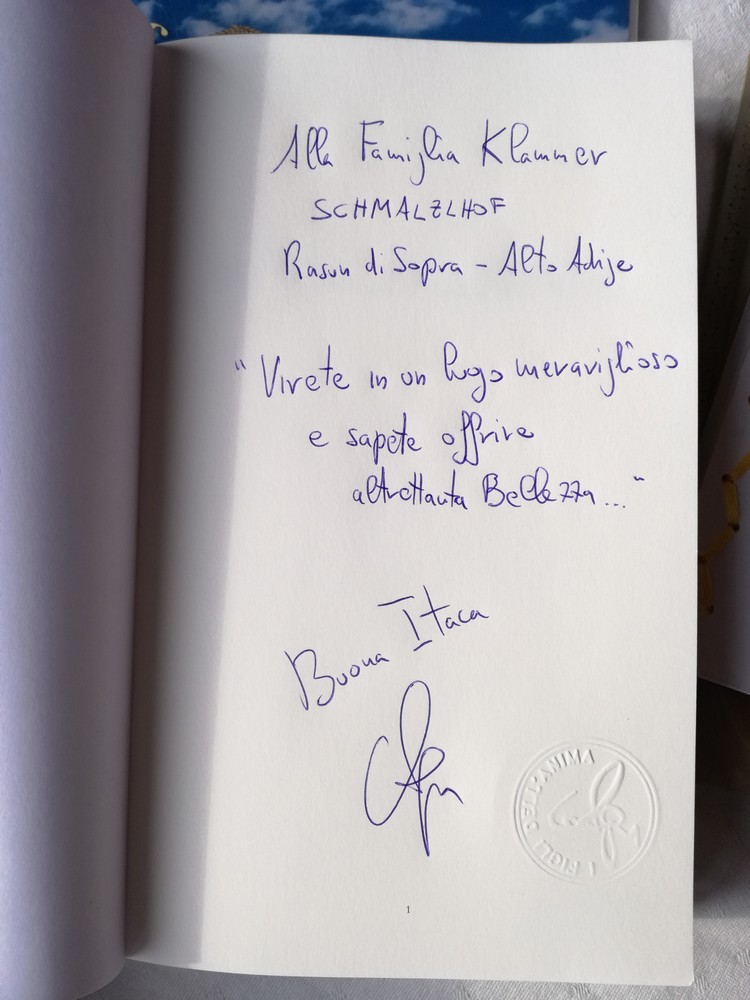 Alla Famiglia Klammer
SCHMALZLHOF
Rasun di Sopra - Alto Adige
"Vivete in un luogo meraviglioso
e sapete offrire
altrettanta Bellezza..."
Buona Itaca
I FIGLI DELL'ANIMA
1